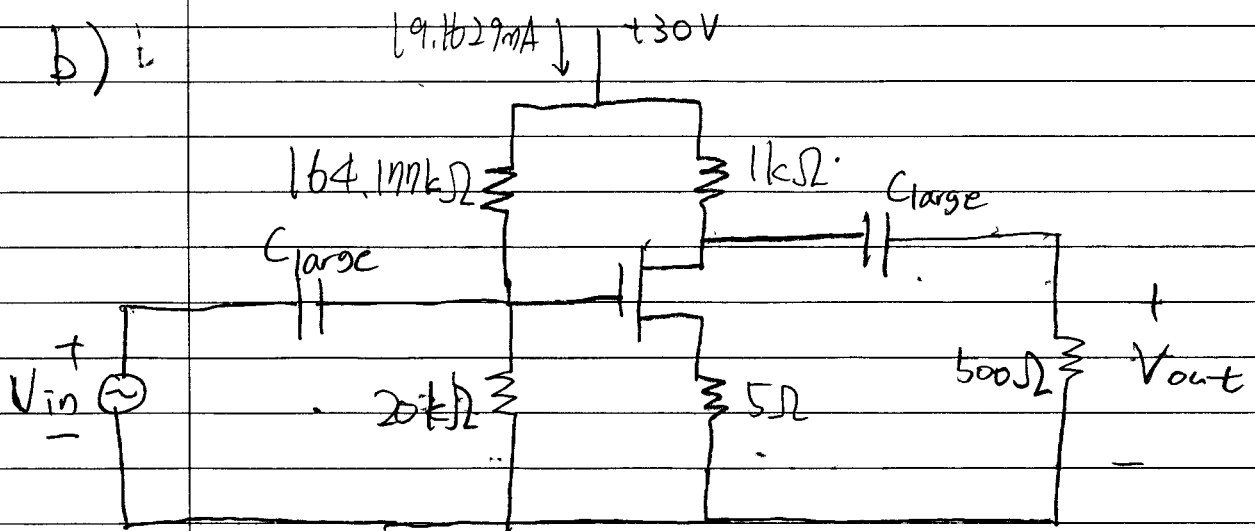 b) i
19.1629mA +30V
164.177kΩ
1kΩ
Clarge
Clarge
+
Vin
−
20kΩ
5Ω
500Ω
+
Vout
−